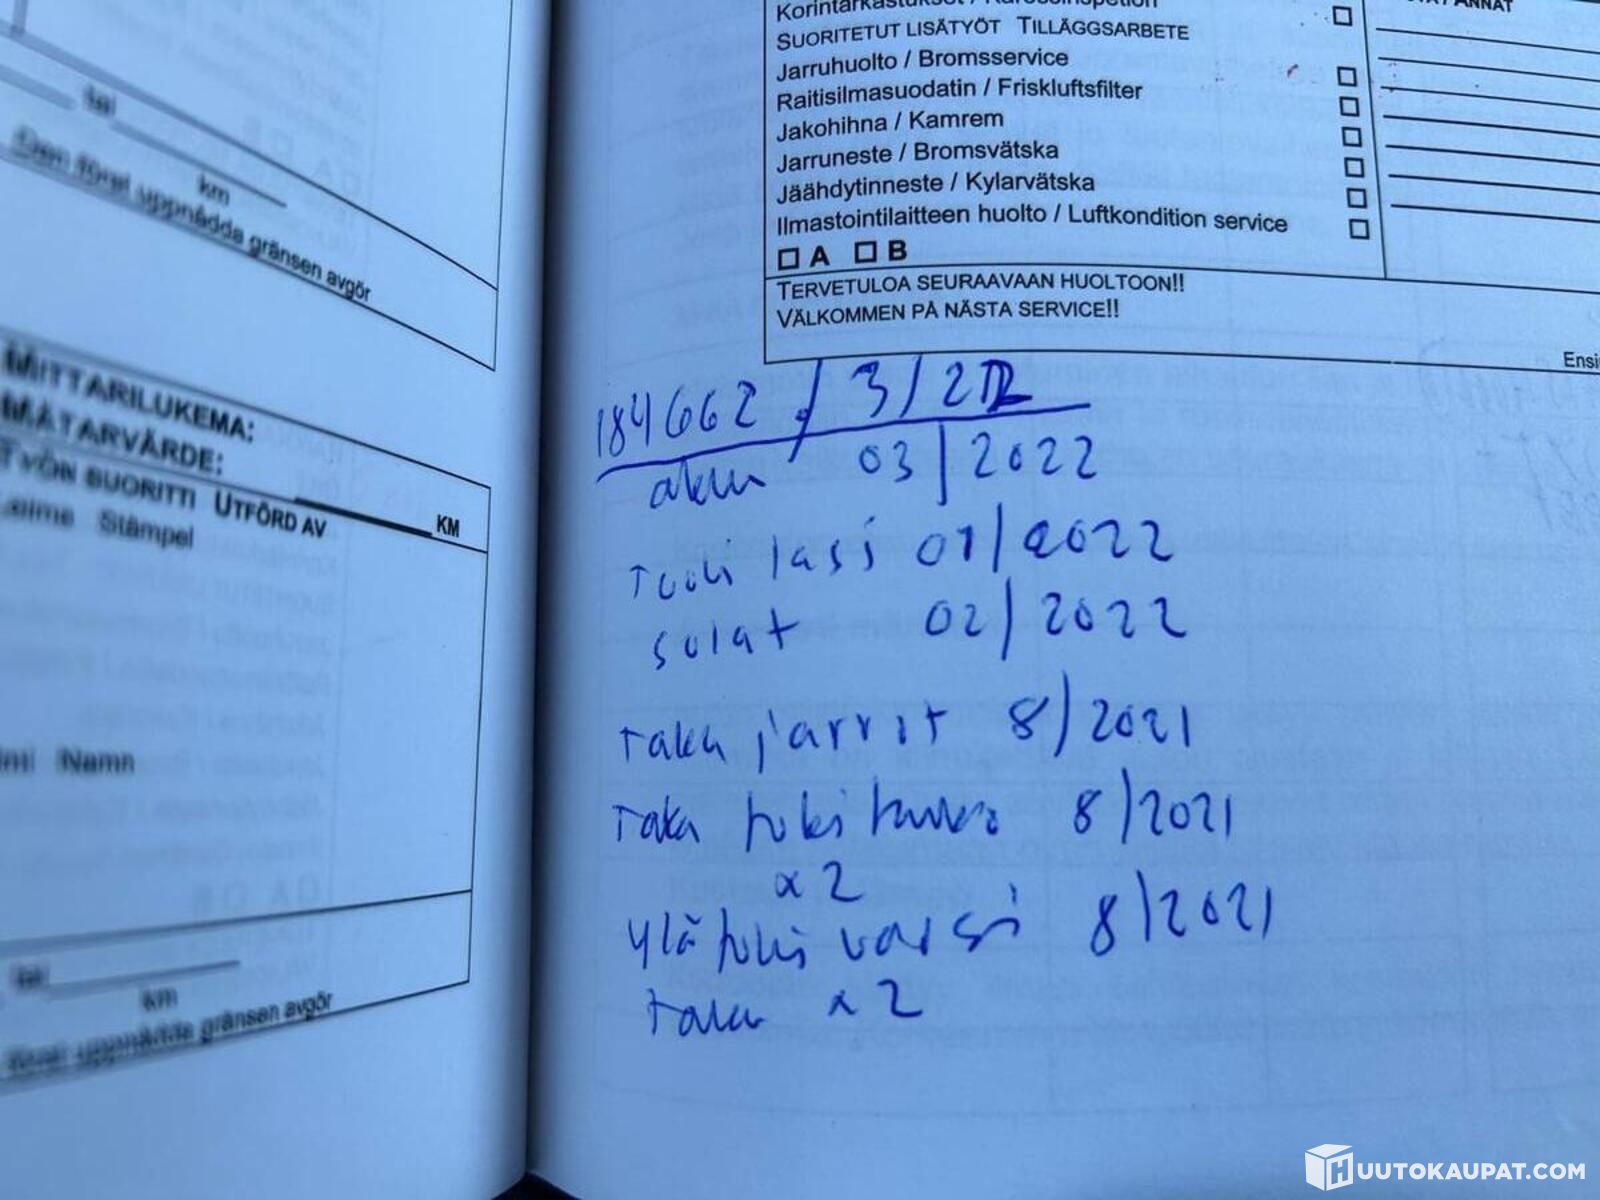 tai
km
Den först uppnådda gränsen avgör
MITTARILUKEMA:
MÄTARVÄRDE:
KM
TYÖN SUORITTI UTFÖRD AV
Leima Stämpel
Namn
tai
km
först uppnådda gränsen avgör
Korintarkastukset / Karossinspektion
SUORITETUT LISÄTYÖT TILLÄGGSARBETE
Jarruhuolto / Bromsservice
Raitisilmasuodatin / Friskluftsfilter
Jakohihna / Kamrem
Jarruneste / Bromsvätska
Jäähdytinneste / Kylarvätska
Ilmastointilaitteen huolto / Luftkondition service
A B
TERVETULOA SEURAAVAAN HUOLTOON!!
VÄLKOMMEN PÅ NÄSTA SERVICE!!
184662 / 3/22
akku 03/2022
tuuli lasi 01/2022
sulat 02/2022
taka jarrut 8/2021
Taka tuki 8/2021
x 2
ylä tuki varsi 8/2021
taka x 2
HUUTOKAUPAT.COM